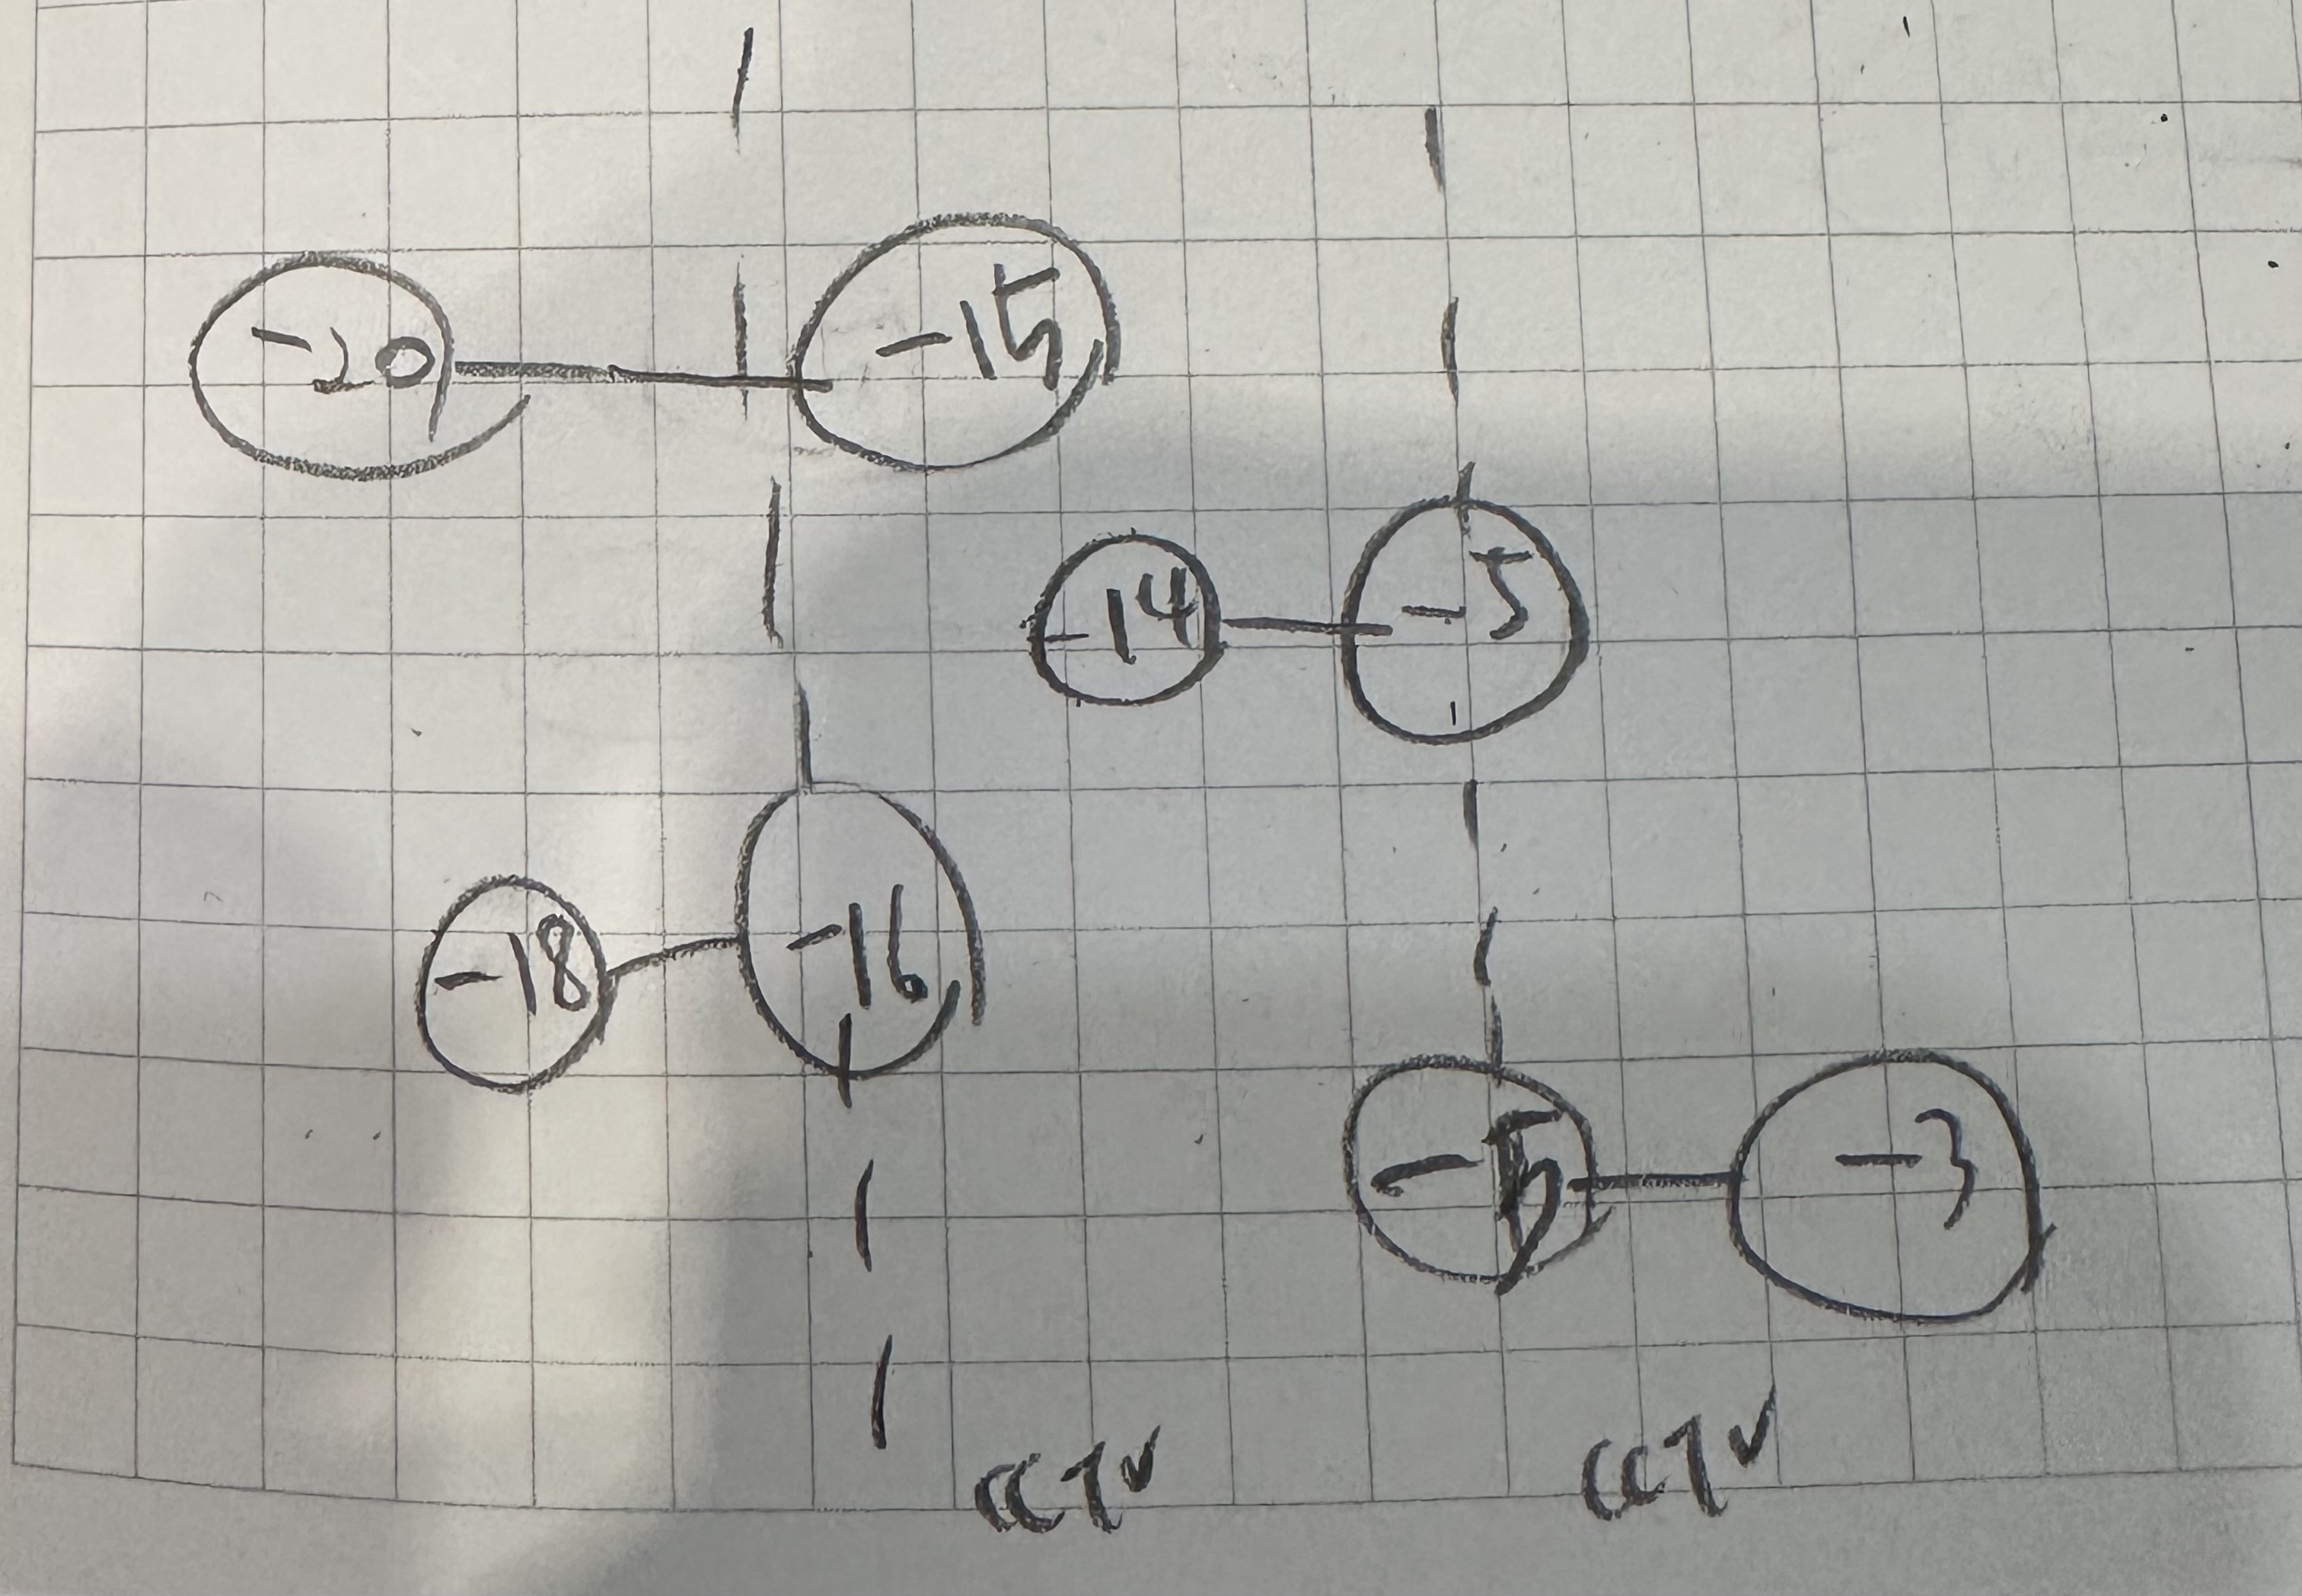 -20 -15
-14 -5
-18 -16
-5 -3
CCTV CCTV